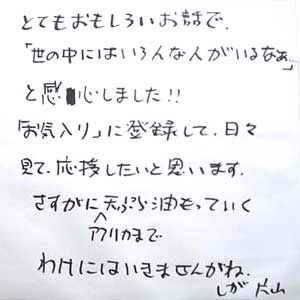 とてもおもしろいお話で、
「世の中にはいろんな人がいるなぁ…」
と感心しました!!
「お気入り」に登録して、日々
見て、応援したいと思います。
さすがに天ぷら油もっていく
アフリカまで
わけにはいきませんがね。
しが 片山